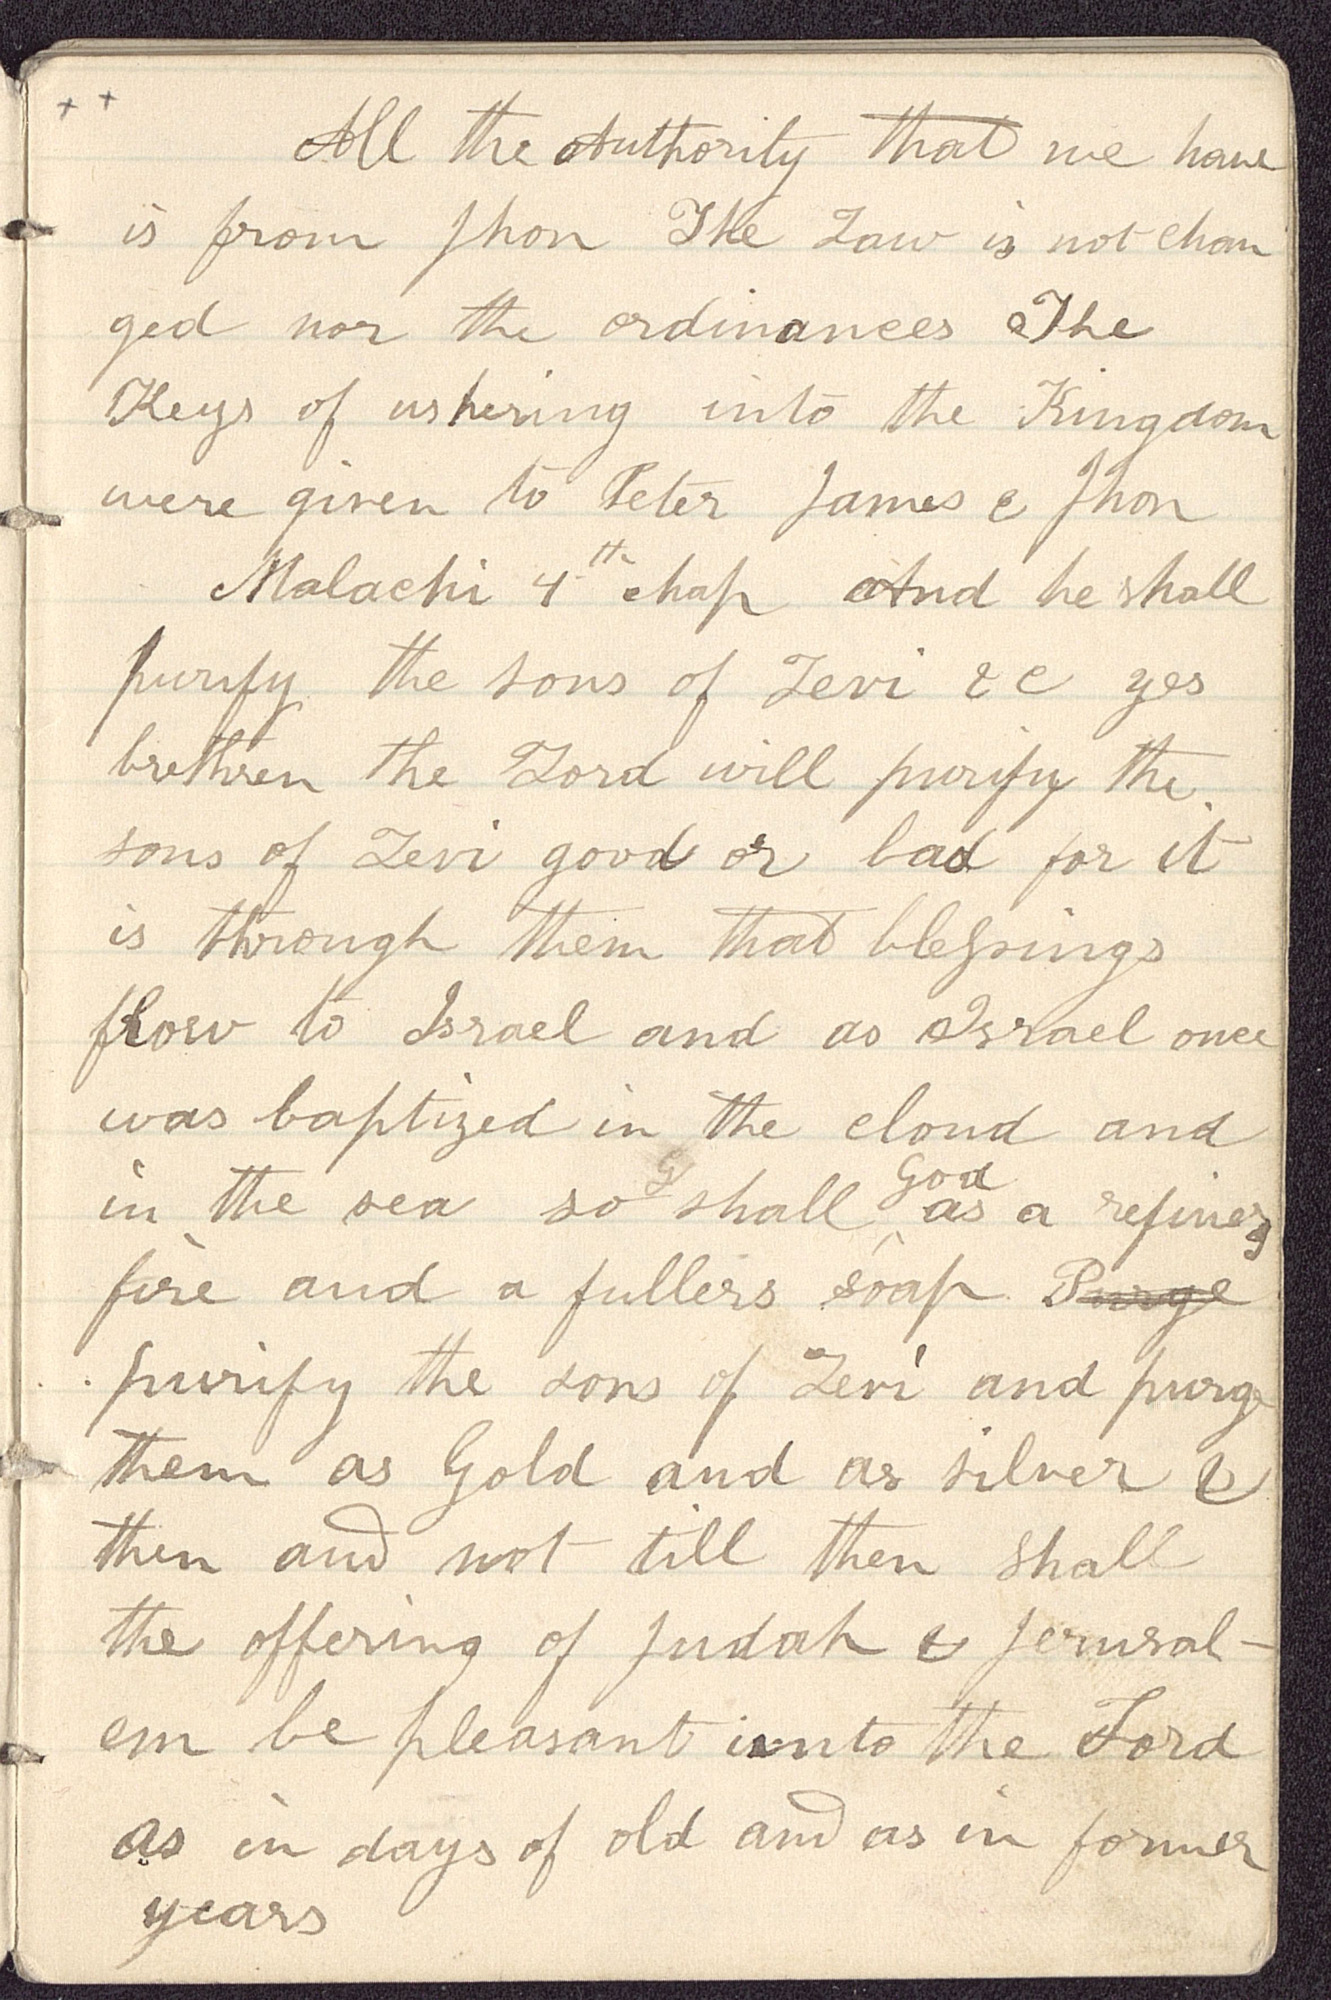 + +
All the Authority that we have
is from Jhon The Law is not chan
ged nor the ordinances The
Keys of ushering into the Kingdom
were given to Peter James & Jhon
Malachi 4th chap And he shall
purify the sons of Levi &c yes
brethren the Lord will purify the
sons of Levi good or bad for it
is through them that blessings
flow to Israel and as Israel once
was baptized in the cloud and
in the sea so shall God as a refiners
fire and a fullers soap Purge
purify the sons of Levi and purge
them as Gold and as silver &
then and not till then shall
the offering of Judah & Jerusal-
em be pleasant unto the Lord
as in days of old and as in former
years